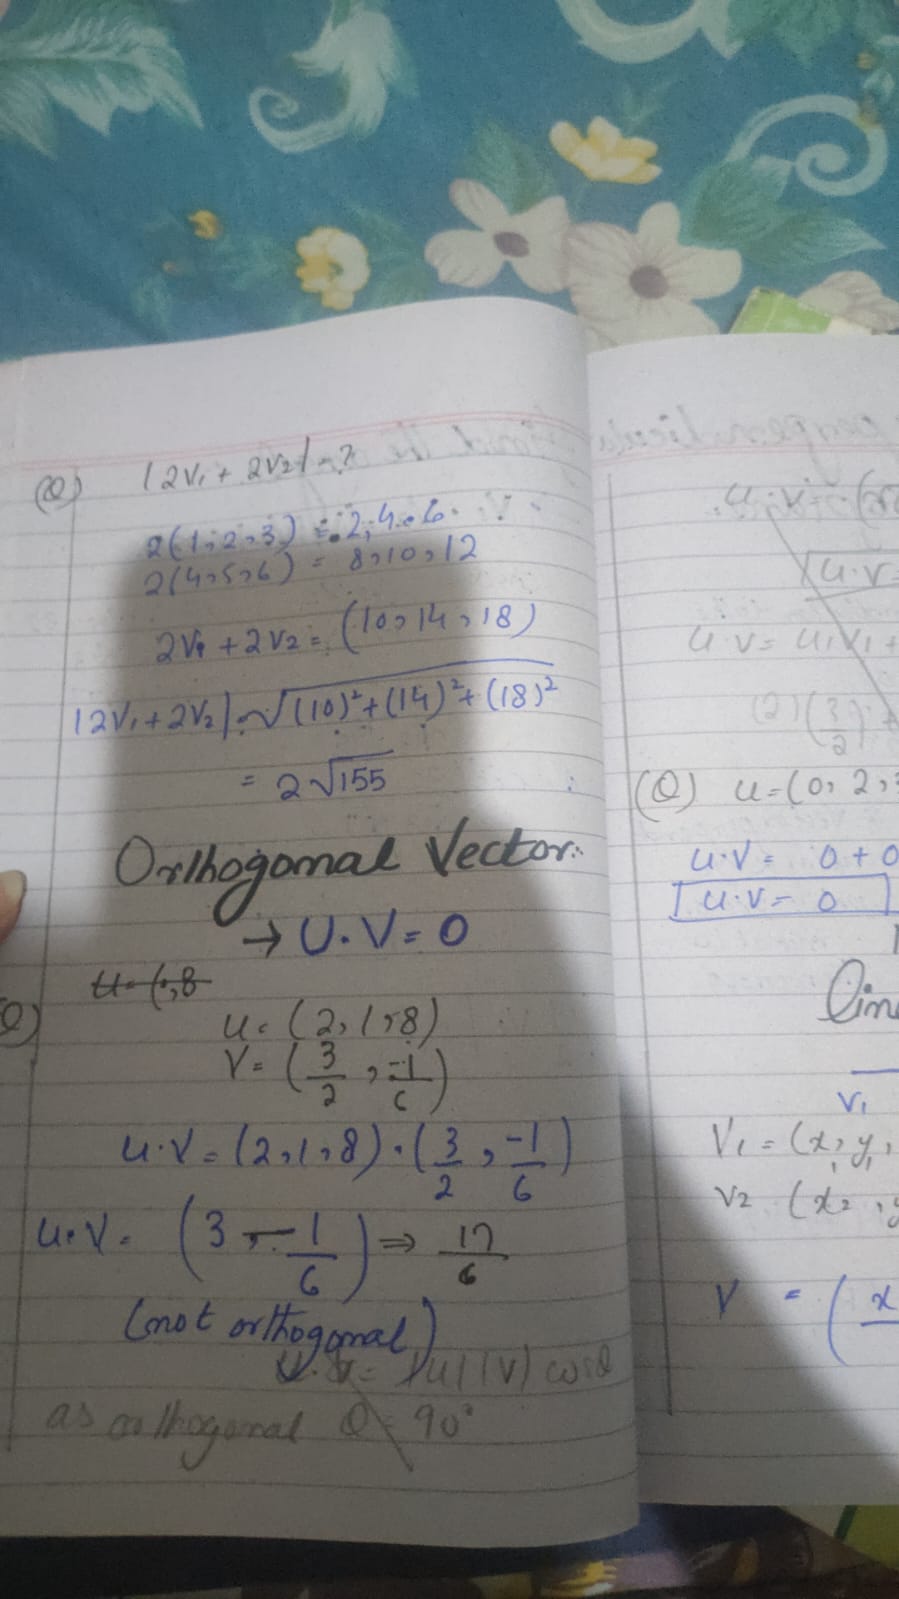 (Q) |2V₁ + 2V₂| = ?
2(1, 2, 3) = 2, 4, 6
2(4, 5, 6) = 8, 10, 12
2V₁ + 2V₂ = (10, 14, 18)
|2V₁ + 2V₂| = √(10)² + (14)² + (18)²
= 2√155
Orthogonal Vector:
→ U . V = 0
u = (2, 1, 8)
V = (3/2, -1/6)
u . V = (2, 1, 8) . (3/2, -1/6)
u . V = (3 - 1/6) ⇒ 17/6
(not orthogonal)
u . v = |u| |v| cos θ
as orthogonal θ = 90°
u . v
u . v = u₁v₁ +
(2)(3/2) +
(Q) u = (0, 2,
u . v = 0 + 0
u . v = 0
V₁
V₁ = (x₁ y₁
V₂ (x₂ , y
V = ( x